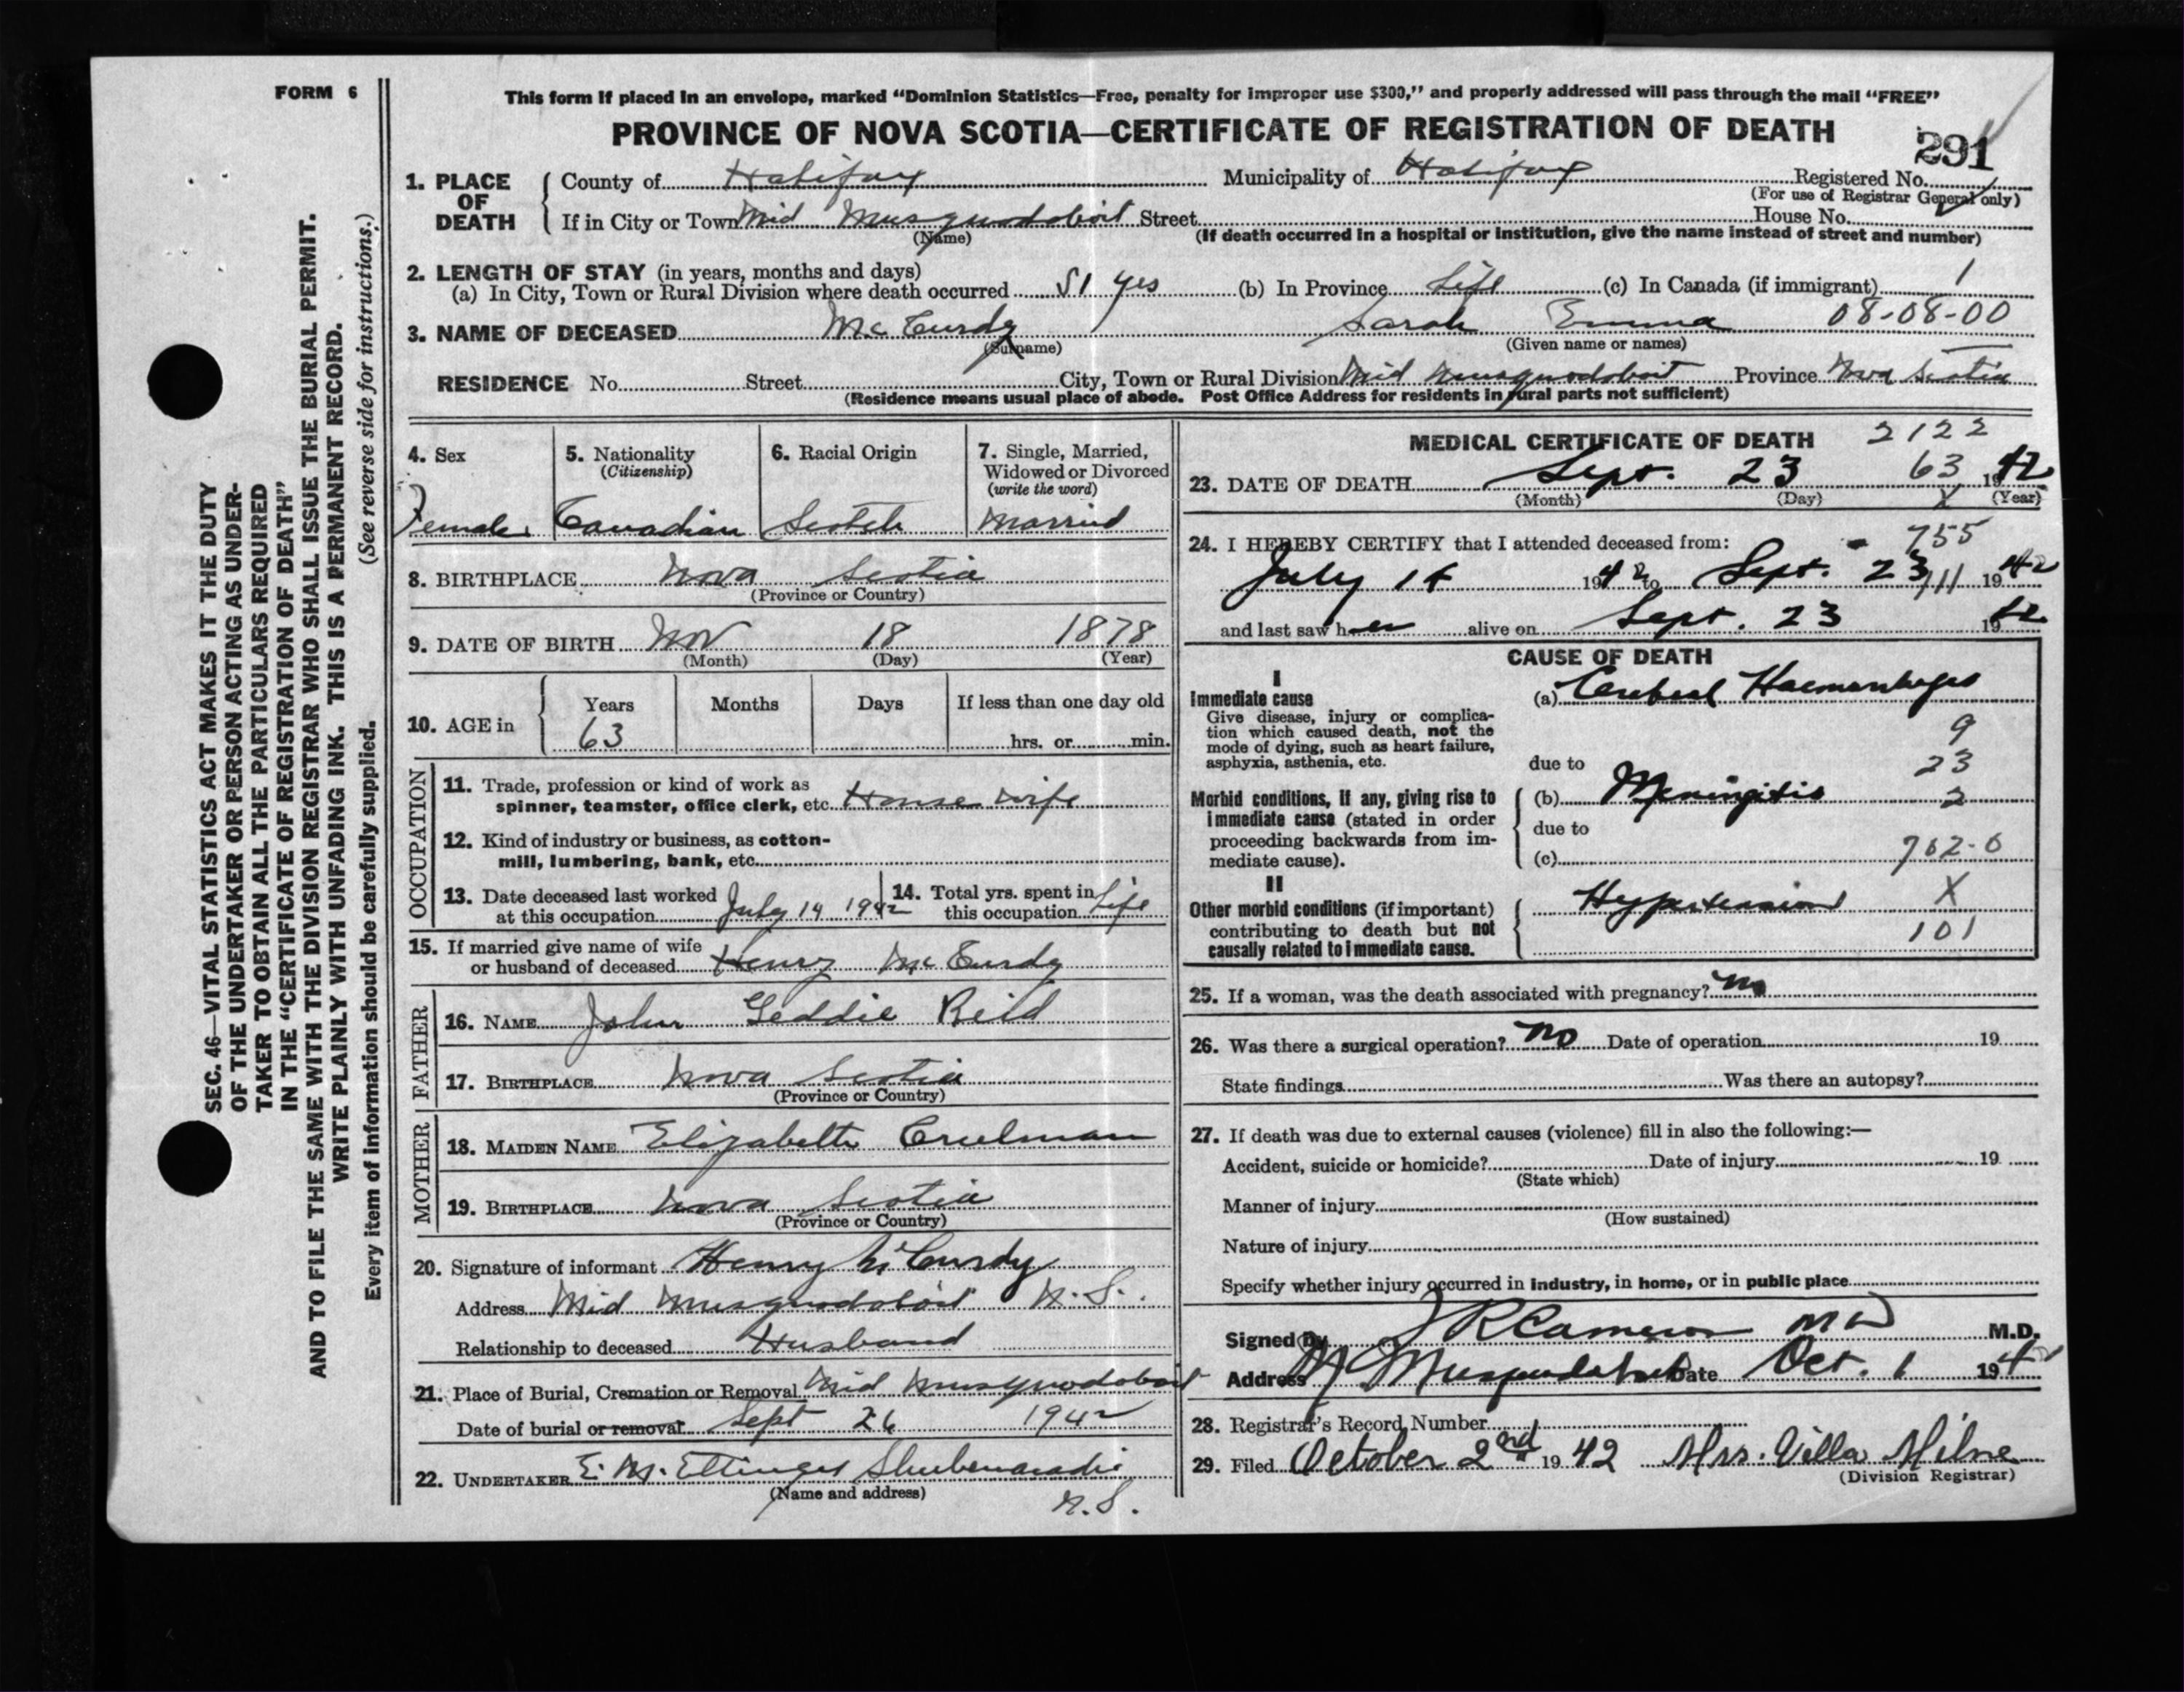 FORM 6
This form if placed in an envelope, marked “Dominion Statistics—Free, penalty for improper use $300,” and properly addressed will pass through the mail “FREE”
PROVINCE OF NOVA SCOTIA—CERTIFICATE OF REGISTRATION OF DEATH
291
1. PLACE OF DEATH
County of Halifax Municipality of Halifax Registered No.
(For use of Registrar General only)
If in City or Town Mid Musquodoboit Street House No.
(Name) (If death occurred in a hospital or institution, give the name instead of street and number)
2. LENGTH OF STAY (in years, months and days)
(a) In City, Town or Rural Division where death occurred 51 yes (b) In Province Life (c) In Canada (if immigrant) 1
3. NAME OF DECEASED McCurdy Sarah Emma 08-08-00
(Surname) (Given name or names)
RESIDENCE No. Street City, Town or Rural Division Mid Musquodoboit Province Nova Scotia
(Residence means usual place of abode. Post Office Address for residents in rural parts not sufficient)
4. Sex
Female
5. Nationality
(Citizenship)
Canadian
6. Racial Origin
Scotch
7. Single, Married,
Widowed or Divorced
(write the word)
Married
8. BIRTHPLACE Nova Scotia
(Province or Country)
9. DATE OF BIRTH Nov 18 1878
(Month) (Day) (Year)
10. AGE in Years Months Days If less than one day old
63 hrs. or min.
OCCUPATION
11. Trade, profession or kind of work as
spinner, teamster, office clerk, etc. House wife
12. Kind of industry or business, as cotton-
mill, lumbering, bank, etc.
13. Date deceased last worked
at this occupation July 14 1942
14. Total yrs. spent in
this occupation Life
15. If married give name of wife
or husband of deceased Henry McCurdy
FATHER
16. NAME John Geddie Reid
17. BIRTHPLACE Nova Scotia
(Province or Country)
MOTHER
18. MAIDEN NAME Elizabeth Creelman
19. BIRTHPLACE Nova Scotia
(Province or Country)
20. Signature of informant Henry McCurdy
Address Mid Musquodoboit N.S.
Relationship to deceased Husband
21. Place of Burial, Cremation or Removal Mid Musquodoboit
Date of burial or removal Sept 26 1942
22. UNDERTAKER E. M. Ettinger Shubenacadie
(Name and address) N.S.
MEDICAL CERTIFICATE OF DEATH 2122
63
23. DATE OF DEATH Sept. 23 1942
(Month) (Day) X (Year)
24. I HEREBY CERTIFY that I attended deceased from: 755
July 14 1942 to Sept. 23 111 1942
and last saw her alive on Sept. 23 1942
CAUSE OF DEATH
I
Immediate cause
Give disease, injury or complica-
tion which caused death, not the
mode of dying, such as heart failure,
asphyxia, asthenia, etc.
(a) Cerebral Haemorrhages
9
due to 23
Morbid conditions, if any, giving rise to
immediate cause (stated in order
proceeding backwards from im-
mediate cause).
(b) Meningitis 2
due to
(c) 762-0
II
Other morbid conditions (if important)
contributing to death but not
causally related to immediate cause.
Hypertension X
101
25. If a woman, was the death associated with pregnancy? No
26. Was there a surgical operation? No Date of operation 19
State findings Was there an autopsy?
27. If death was due to external causes (violence) fill in also the following:—
Accident, suicide or homicide? Date of injury 19
(State which)
Manner of injury
(How sustained)
Nature of injury
Specify whether injury occurred in industry, in home, or in public place
Signed by J R Cameron MD M.D.
Address M Musquodoboit Date Oct. 1 194
28. Registrar's Record Number
29. Filed October 2nd 1942 Mrs. Villa Milne
(Division Registrar)
SEC. 46—VITAL STATISTICS ACT MAKES IT THE DUTY
OF THE UNDERTAKER OR PERSON ACTING AS UNDER-
TAKER TO OBTAIN ALL THE PARTICULARS REQUIRED
IN THE “CERTIFICATE OF REGISTRATION OF DEATH”
AND TO FILE THE SAME WITH THE DIVISION REGISTRAR WHO SHALL ISSUE THE BURIAL PERMIT.
WRITE PLAINLY WITH UNFADING INK. THIS IS A PERMANENT RECORD.
Every item of information should be carefully supplied. (See reverse side for instructions.)